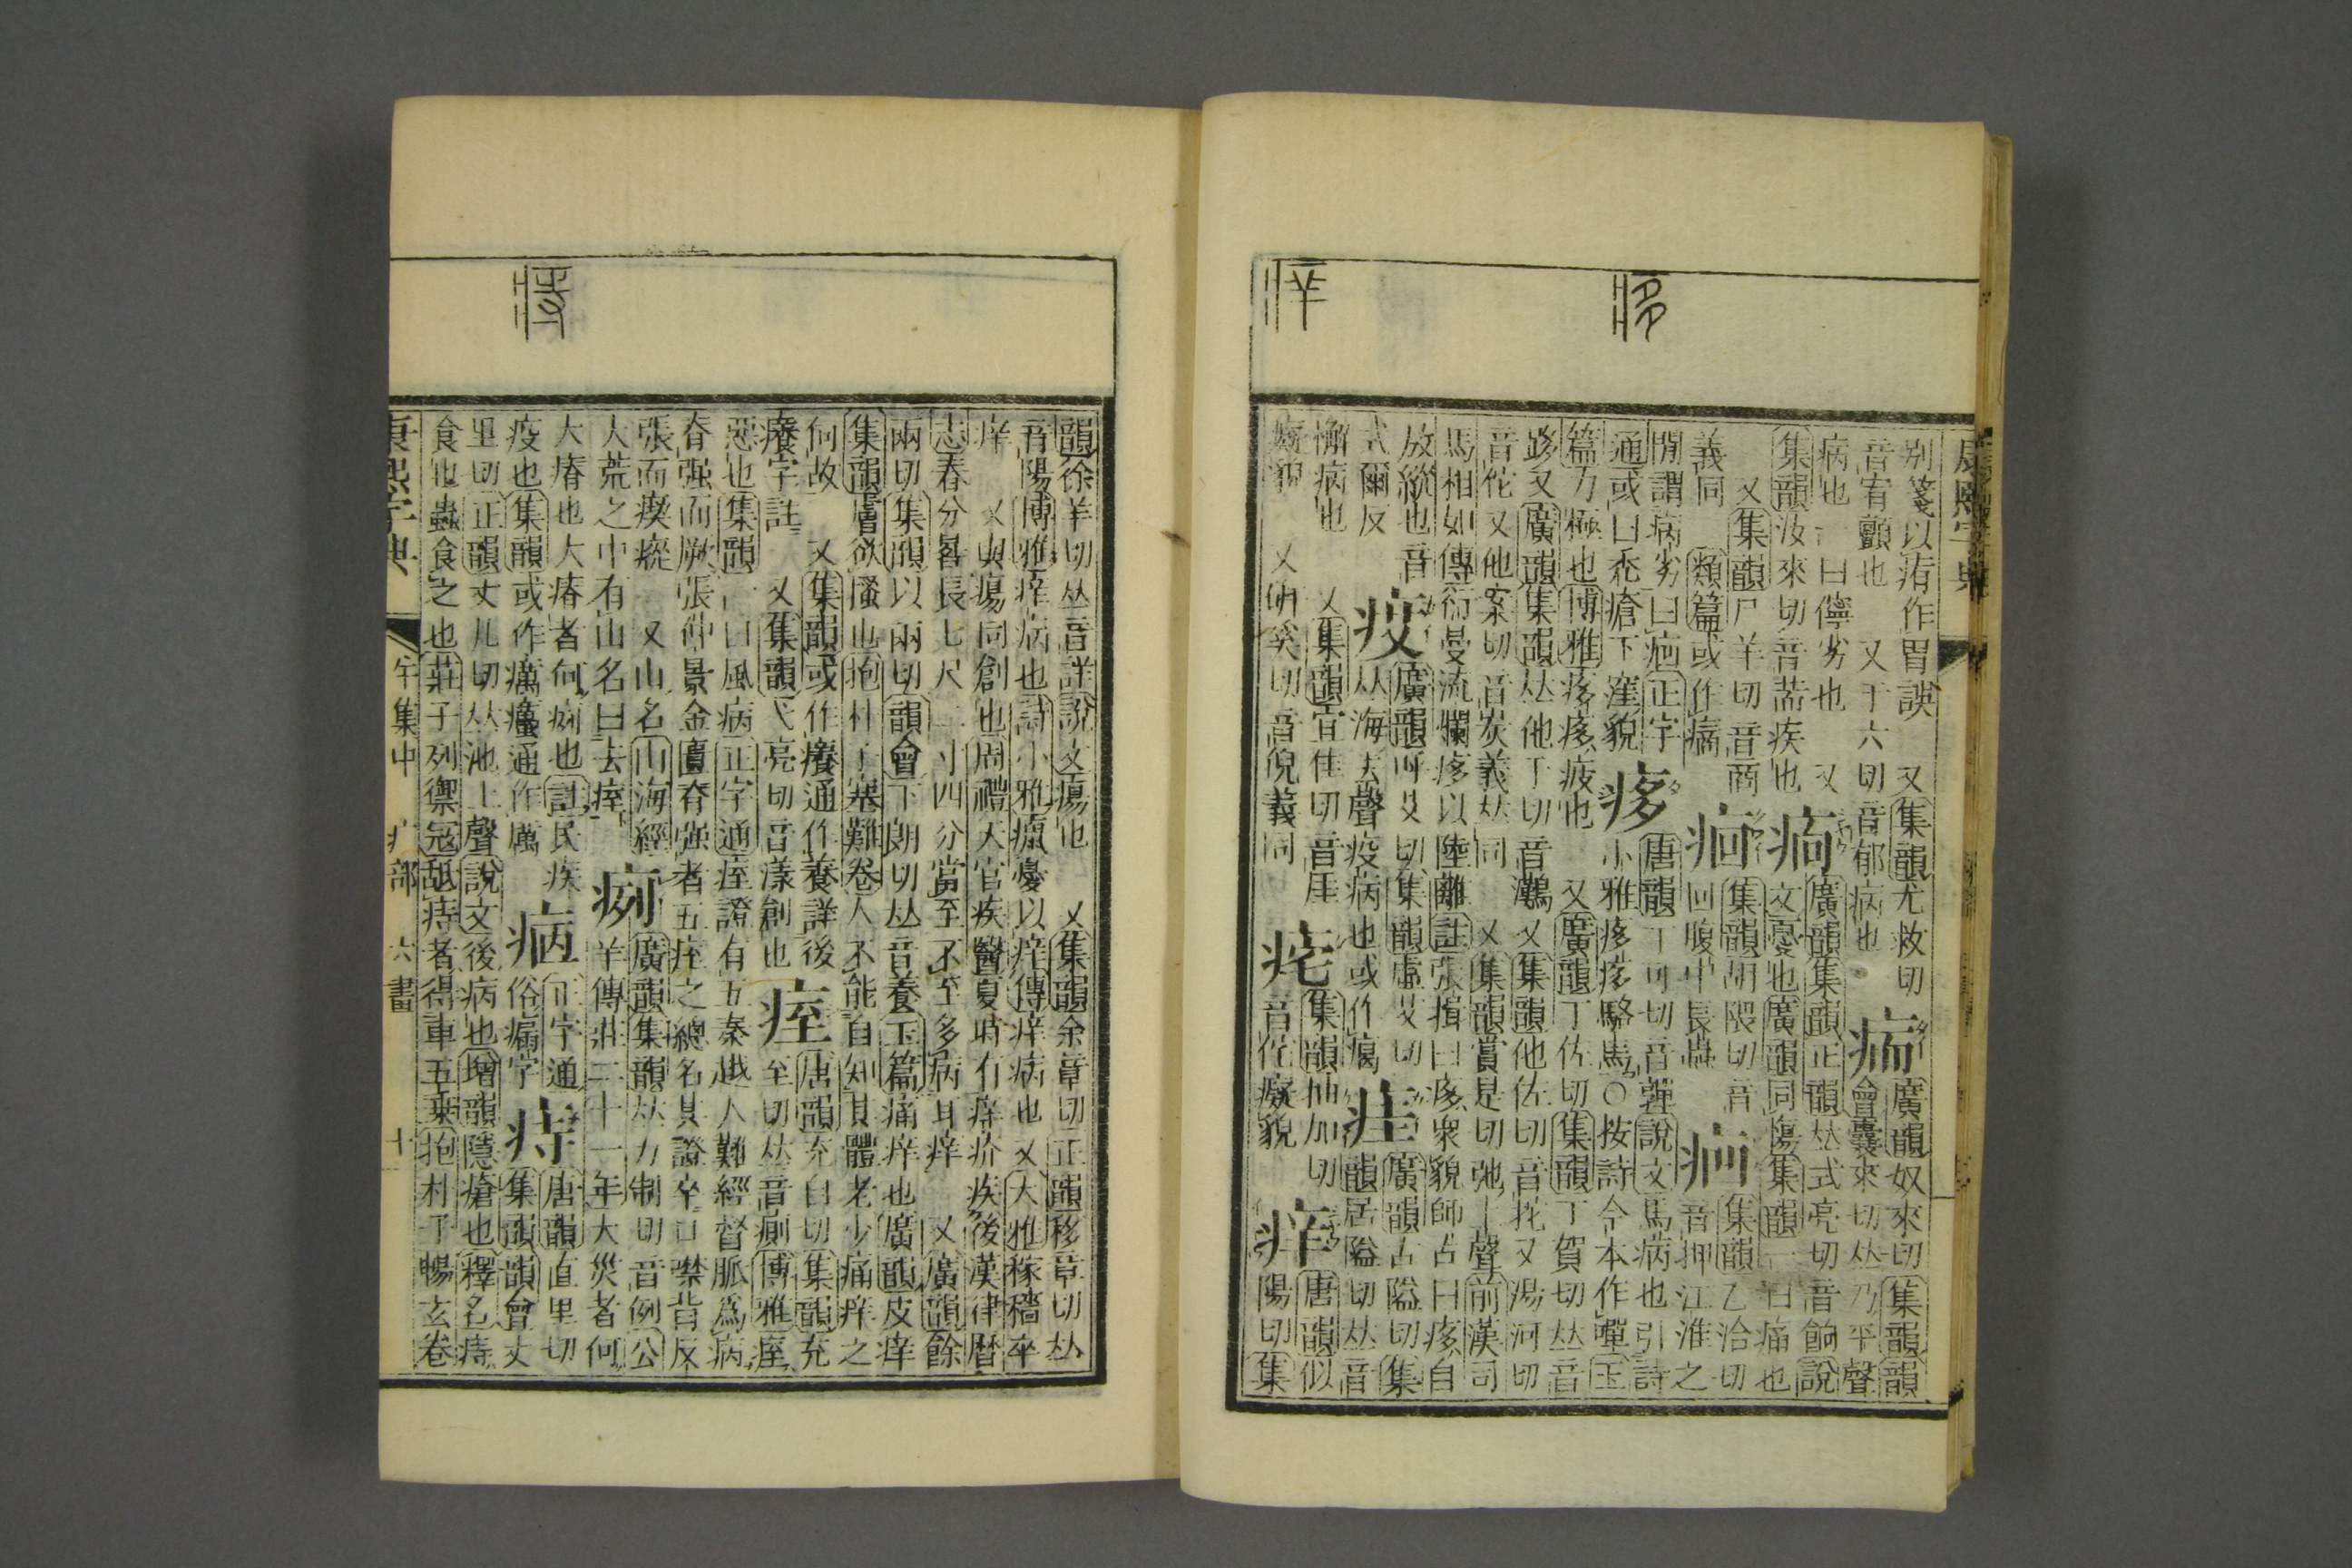 康熙字典
別箋以㾞作胃誤 又集韻尤救切
音宥顫也 又于六切音郁病也
廣韻奴來切集韻韻
會囊來切𠀤乃平聲
病也一曰儜劣也 又
集韻汝來切音荋疾也
廣韻集韻正韻𠀤式亮切音餉說
文憂也廣韻同傷集韻一曰痛也
又集韻尸羊切音商
義同 類篇或作
痐
集韻胡隈切音
回腹中長蟲
集韻乙洽切
音押江淮之
閒謂病劣曰 正字
通或曰禿瘡下窪貌
痑
唐韻丁可切音嚲說文馬病也引詩
小雅痑痑駱馬○按詩今本作嘽玉
篇力極也博雅痑痑疲也 又廣韻丁佐切集韻丁賀切𠀤音
跢又廣韻集韻𠀤他丁切音 又集韻他佐切音拕又湯河切
音佗又他案切音炭義𠀤同 又集韻賞是切弛上聲前漢司
馬相如傳衍曼流爛痑以陸離註張揖曰痑衆貌師古曰痑自
放縱也音
式爾反
廣韻呼艾切集韻虛艾切
𠀤海去聲疫病也或作
㾏
廣韻古隘切集
韻居隘切𠀤音
懈病也 又集韻宜佳切音厓
癡貌 又研奚切音倪義同
集韻抽加切
音侘癡貌
痒
唐韻似
陽切集
韻徐羊切𠀤音詳說文瘍也 又集韻余章切正韻移章切𠀤
音陽博雅痒病也詩小雅癙憂以痒傳痒病也 又大雅稼穡卒
痒 又與瘍同創也周禮天官疾醫夏時有痒疥疾後漢律曆
志春分晷長七尺二寸四分當至不至多病耳痒 又廣韻餘
兩切集韻以兩切韻會下朗切𠀤音養玉篇痛痒也廣韻皮痒
集韻膚欲搔也抱朴子塞難卷人不能自知其體老少痛痒之
何故 又集韻或作癢通作養詳後
癢字註 又集韻弋亮切音漾創也
痓
唐韻充自切集韻充
至切𠀤音廁博雅痓
惡也集韻一曰風病正字通痓證有五秦越人難經督脈為病
脊强而厥張仲景金匱脊强者五痓之總名其證卒口噤背反
張而瘈瘲 又山名山海經
大荒之中有山名曰去痓
㾐
廣韻集韻𠀤力制切音例公
羊傳莊二十一年大災者何
大瘠也大瘠者何㾐也註民疾
疫也集韻或作癘 通作厲
正字通
俗瘺字
痔
唐韻直里切
集韻韻會丈
里切正韻丈几切𠀤池上聲說文後病也增韻隱瘡也釋名痔
食也蟲食之也莊子列禦寇舐痔者得車五乘抱朴子暢玄卷
康熙字典 午集中 疒部 六畫 十